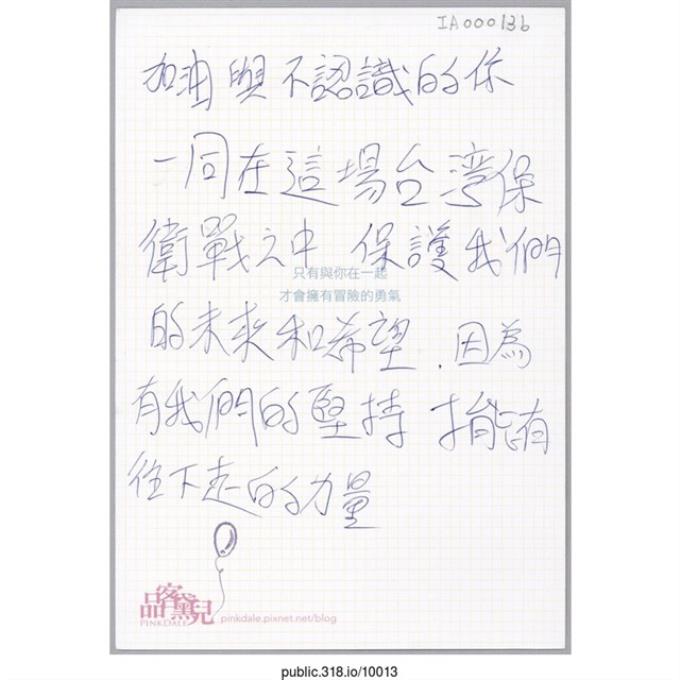 IA000136
加油 與不認識的你
一同在這場台灣保
衛戰之中 保護我們
只有與你在一起
才會擁有冒險的勇氣
的未來和希望．因為
有我們的堅持 才能有
往下走的力量
品客黛兒
PINKDALE
pinkdale.pixnet.net/blog
public.318.io/10013